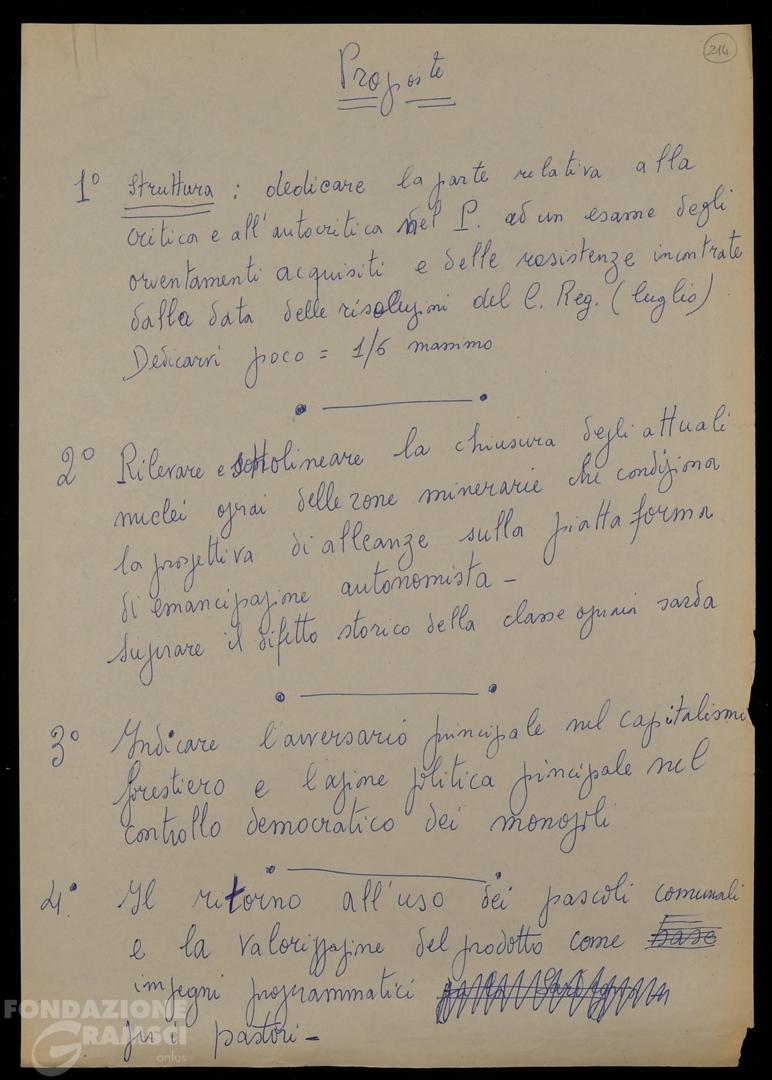 214
Proposte
1° Struttura : dedicare la parte relativa alla
critica e all'autocritica nel P. ad un esame degli
orientamenti acquisiti e delle resistenze incontrate
dalla data delle risoluzioni del C. Reg. (luglio)
Dedicarvi poco = 1/6 massimo
2° Rilevare e sottolineare la chiusura degli attuali
nuclei operai delle zone minerarie che condiziona
la prospettiva di alleanze sulla piattaforma
di emancipazione autonomista -
Superare il difetto storico della classe operaia sarda
3° Indicare l'avversario principale nel capitalismo
forestiero e l'azione politica principale nel
controllo democratico dei monopoli
4° Il ritorno all'uso dei pascoli comunali
e la valorizzazione del prodotto come base
impegni programmatici
per i pastori -
FONDAZIONE
GRAMSCI
onlus